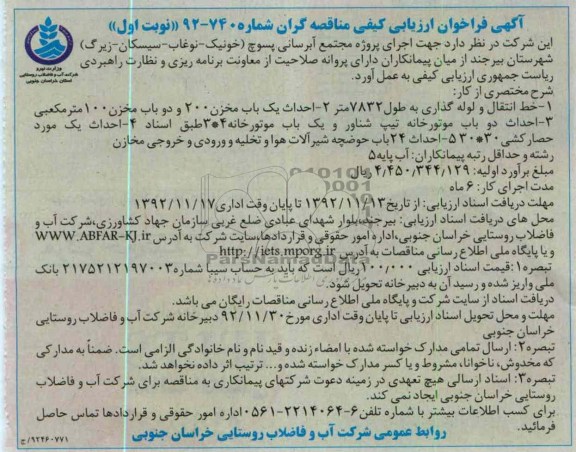 آگهی فراخوان ارزیابی کیفی مناقصه گران شماره ۷۴۰-۹۲ «نوبت اول»
این شرکت در نظر دارد جهت اجرای پروژه مجتمع آبرسانی پسوچ (خونیک-نوغاب-سیسکان-زیرگ)
شهرستان بیرجند از میان پیمانکاران دارای پروانه صلاحیت از معاونت برنامه ریزی و نظارت راهبردی
ریاست جمهوری ارزیابی کیفی به عمل آورد.
شرح مختصری از کار:
۱-خط انتقال و لوله گذاری به طول ۷۸۳۲متر ۲-احداث یک باب مخزن ۲۰۰ و دو باب مخزن ۱۰۰مترمکعبی
۳-احداث دو باب موتورخانه تیپ شناور و یک باب موتورخانه ۴*۳طبق اسناد ۴-احداث یک مورد
حصارکشی ۳۰*۳۰ ۵-احداث ۲۴باب حوضچه شیرآلات هوا و تخلیه و ورودی و خروجی مخازن
رشته و حداقل رتبه پیمانکاران: آب پایه۵
مبلغ برآورد اولیه: ۴/۴۵۰/۳۴۴/۱۲۹ ریال
مدت اجرای کار: ۶ ماه
مهلت دریافت اسناد ارزیابی: از تاریخ ۱۳۹۲/۱۱/۱۳ تا پایان وقت اداری ۱۳۹۲/۱۱/۱۷
محل های دریافت اسناد ارزیابی: بیرجند،بلوار شهدای عبادی ضلع غربی سازمان جهاد کشاورزی،شرکت آب و
فاضلاب روستایی خراسان جنوبی،اداره امور حقوقی و قراردادها،سایت شرکت به آدرس WWW.ABFAR-KJ.ir
و یا پایگاه ملی اطلاع رسانی مناقصات به آدرس http://iets.mporg.ir
تبصره۱:قیمت اسناد ارزیابی ۱۰۰/۰۰۰ریال است که باید به حساب سیبا شماره ۲۱۷۵۲۱۲۱۹۷۰۰۳ بانک
ملی واریز شده و رسید آن به دبیرخانه تحویل شود.
دریافت اسناد از سایت شرکت و پایگاه ملی اطلاع رسانی مناقصات رایگان می باشد.
مهلت و محل تحویل اسناد ارزیابی تا پایان وقت اداری مورخ ۹۲/۱۱/۳۰ دبیرخانه شرکت آب و فاضلاب روستایی
خراسان جنوبی
تبصره۲: ارسال تمامی مدارک خواسته شده با امضاء زنده و قید نام و نام خانوادگی الزامی است. ضمناً به مدارکی
که مخدوش، ناخوانا، مشروط و یا کسر مدارک خواسته شده و... ترتیب اثر داده نخواهد شد.
تبصره۳: اسناد ارسالی هیچ تعهدی در زمینه دعوت شرکتهای پیمانکاری به مناقصه برای شرکت آب و فاضلاب
روستایی خراسان جنوبی ایجاد نمی کند.
برای کسب اطلاعات بیشتر با شماره تلفن ۶-۲۲۱۴۰۶۴-۰۵۶۱اداره امور حقوقی و قراردادها تماس حاصل
فرمائید.
روابط عمومی شرکت آب و فاضلاب روستایی خراسان جنوبی
۹۲۴۶۰۷۷۱/ج
وزارت نیرو
شرکت آب و فاضلاب روستایی
استان خراسان جنوبی
ParsNamadData